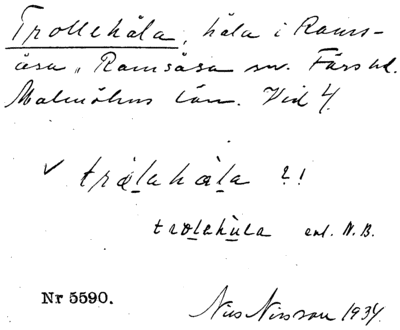 Trollehåla, håla i Rams-
åsa, Ramsåsa sn. Färs hd.
Malmöhus län. Vid 4.
✓ trålahåla ?!
trolehula enl. N.B.
Nr 5590.
Nils Nilsson 1934.